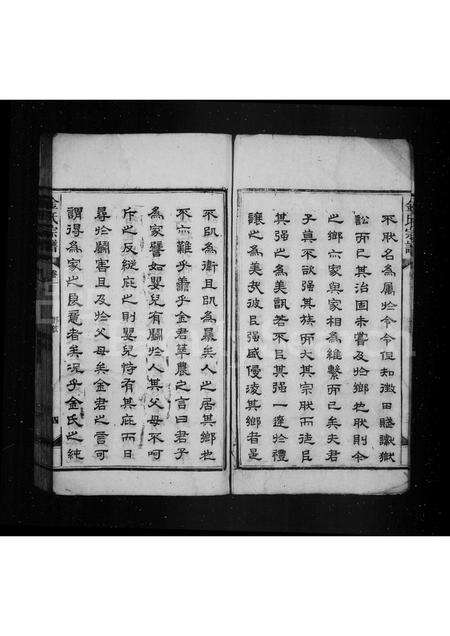 金氏宗譜
不耿名為屬於今今但知徵田賭讞獄
訟而已其治固未嘗及於鄉也耿則今
之鄉六家與家相為維繫而已矣夫君
子真不欲强其族而大其宗耿而徒㠯
其强之為美訊若不㠯其强一達於禮
讓之為美哉彼㠯强威優凌其鄉者是
不以為衛且以為暴矣人之居其鄉也
不亦難乎善乎金君華農之言曰君子
為家譬如嬰兒有鬭於人其父母不呵
斥之反縱庇之則嬰兒恃有其庇而日
尋於鬭害且及於父母矣金君之言可
謂得為家之良意者矣況乎金氏之純
金氏宗譜
四